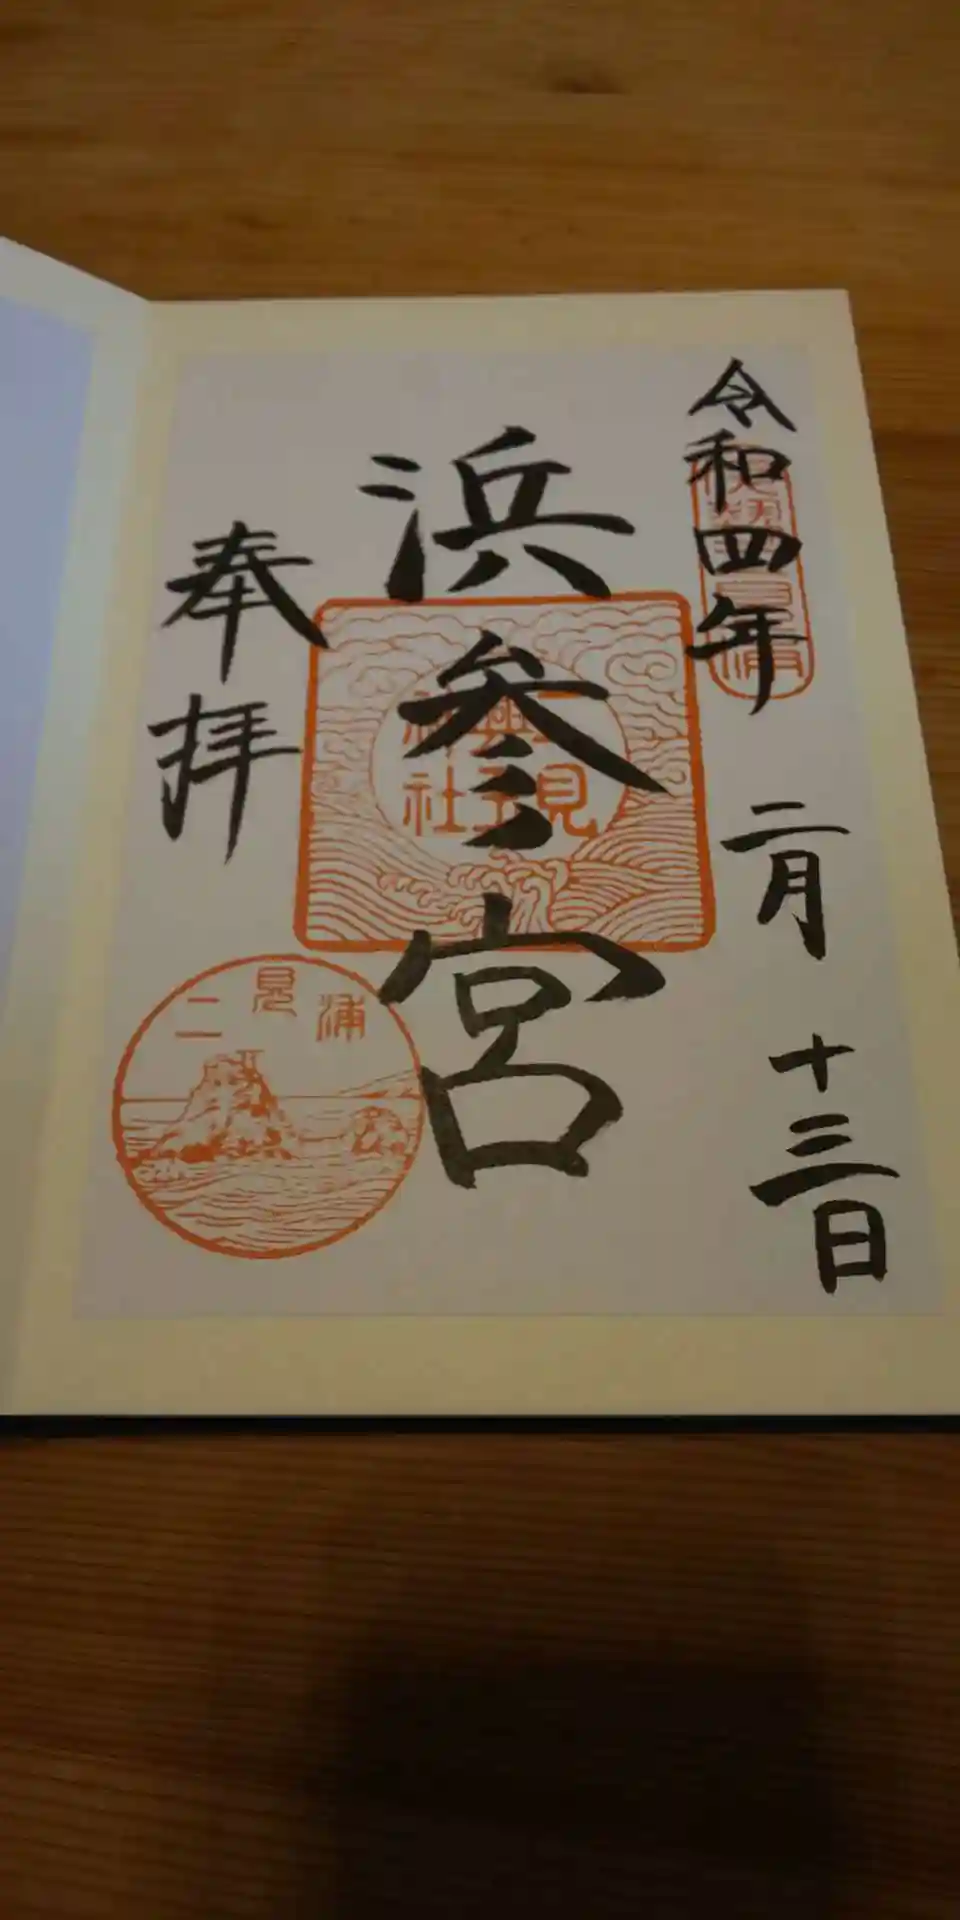 令和四年
二月
十三日
伊勢二見浦
浜参宮
二見興玉神社
奉拝
二見浦